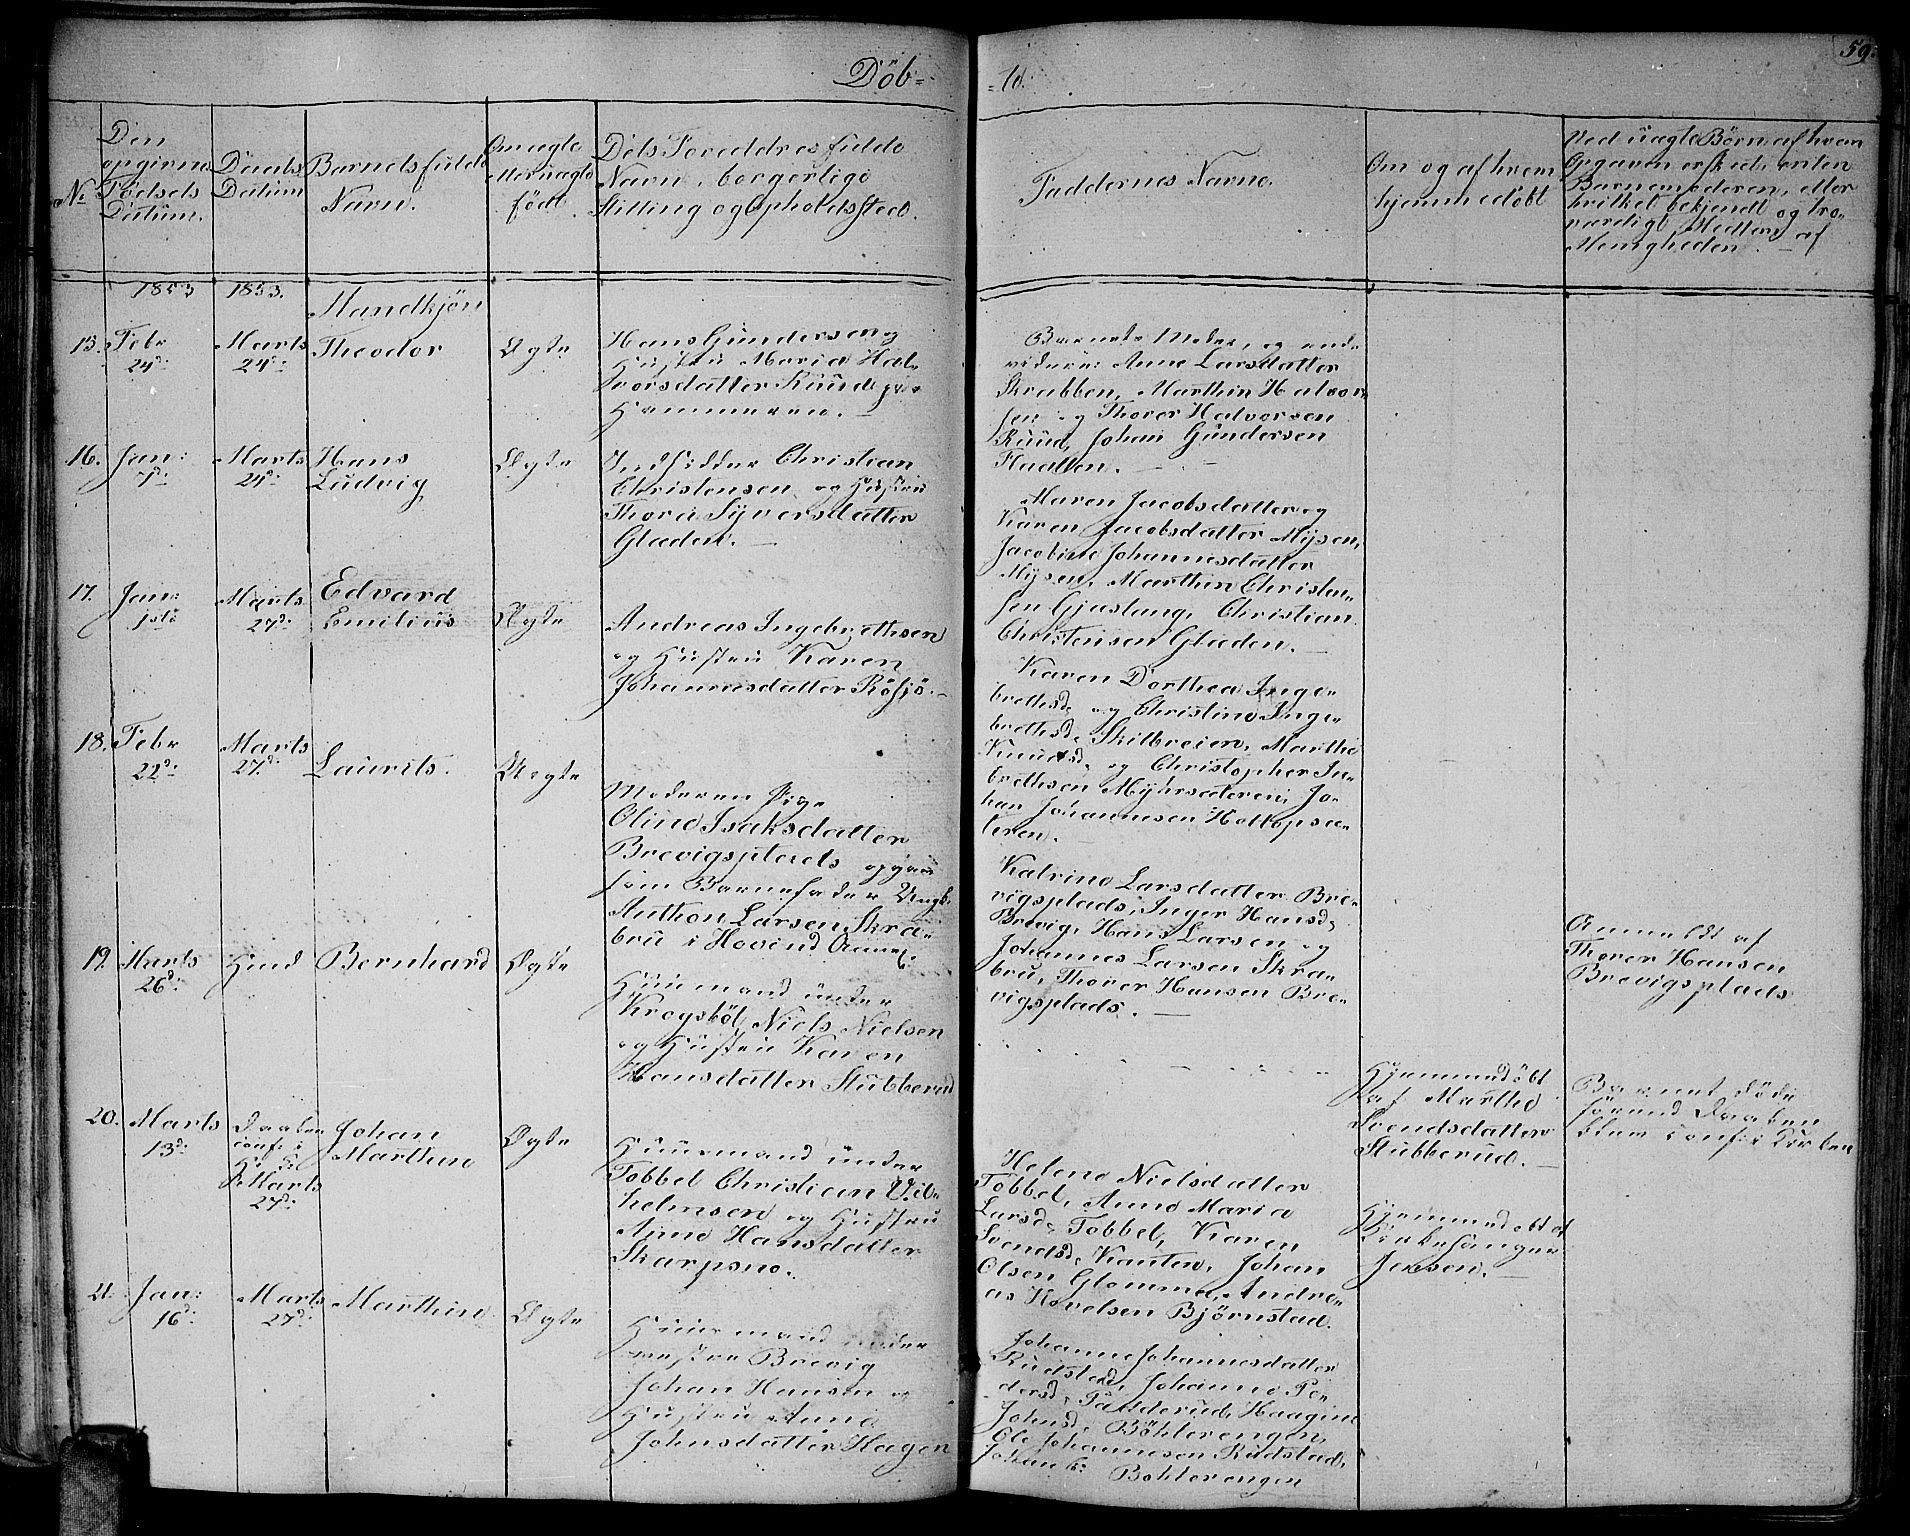 59.
Döb-
-te.
No
Den
opgivne
Fødsels
Datum.
Daabs
Datum
Barnets fulde
Navn.
Om ægte
eller uægte
født.
Dets Foreldres fulde
Navn, borgerlige
Stilling og Opholdssted.
Faddernes Navne.
Om og af hvem
hjemmedöbt
Ved uægte Børn af hvem
Opgaven er skeet, enten
Barnemoderen, eller
hvilket bekjendt og tro-
værdigt Medlem af
Menigheden.
1853
1853.
Mandkjön
15.
Febr
24d:
Marts
24d:
Theodor
Ægte
Hans Gundersen og
Hustru Maria Hal-
vorsdatter Ruud paa
Hammeren.
Barnets Moder, og end-
videre: Anne Larsdatter
Skrabben, Marthin Halvor-
sen og Thorer Halvorsen
Ruud, Johan Gundersen
Flaatten.
16.
Jan:
7d:
Marts
24d:
Hans
Ludvig
Ægte
Indsidder Christian
Christensen og Hustru
Thora Syversdatter
Gladen.
Maren Jacobsdatter og
Karen Jacobsdatter Mysen,
Jacobine Johannesdatter
Mysen, Marthin Christen-
sen Gjuslung, Christian
Christensen Gladen.
17.
Jan:
1ste
Marts
27d:
Edvard
Emilius
Ægte
Andreas Ingebrethsen
og Hustru Karen
Johannesdatter Rösjö.
Karen Dorthea Inge-
brethsd. og Christine Inge-
brethsd. Skilbreien, Marthe
Knudsd. og Christopher In-
brethsen Myhrsæteren, Jo-
han Johannesen Holtopsæ-
teren.
18.
Febr
22d:
Marts
27d:
Laurits.
Uægte
Moderen Pige
Oline Isaksdatter
Brevigsplads opgav
som Barnefader Ungk.
Anthon Larsen Skra-
bru i Hovind Annex.
Katrine Larsdatter Bre-
vigsplads, Inger Hansd.
Brevig, Hans Larsen og
Johannes Larsen Skra-
bru, Thorer Hansen Bre-
vigsplads.
Anmeldt af
Thorer Hansen
Brevigsplads
19.
Marts
26d:
Bernhard
Ægte
Huusmand under
Krogsböl, Niels Nielsen
og Hustru Karen
Hansdatter Stubberud
Hjemmedöbt
af Marthe
Svendsdatter
Stubberud.
Barnet döde
förend Daaben
blev conf. i Kirken
20.
Marts
13d:
Daaben
conf. i
Marts
27d:
Johan
Marthin
Ægte
Huusmand under
Tobbel Christian Vil-
helmsen og Hustru
Anne Hansdatter
Skarpsno.
Helene Nielsdatter
Tobbel, Anne Maria
Larsd. Tobbel, Karen
Svendsd. Kanten, Johan
Olsen Glomma, Andre-
as Hovelsen Björnstad.
Hjemmedöbt af
Kirkesanger
Jensen.
21.
Jan:
16d:
Marts
27d:
Marthin
Ægte
Huusmand under
vestre Brevig
Johan Hansen og
Hustru Anne
Johnsdatter Hagen
Johanne Johannesdatter
Rudstad, Johanne Pe-
dersd. Padderud, Haagine
Johnsd. Böhlerengen,
Ole Johannesen Rudstad,
Johan S: Böhlerengen